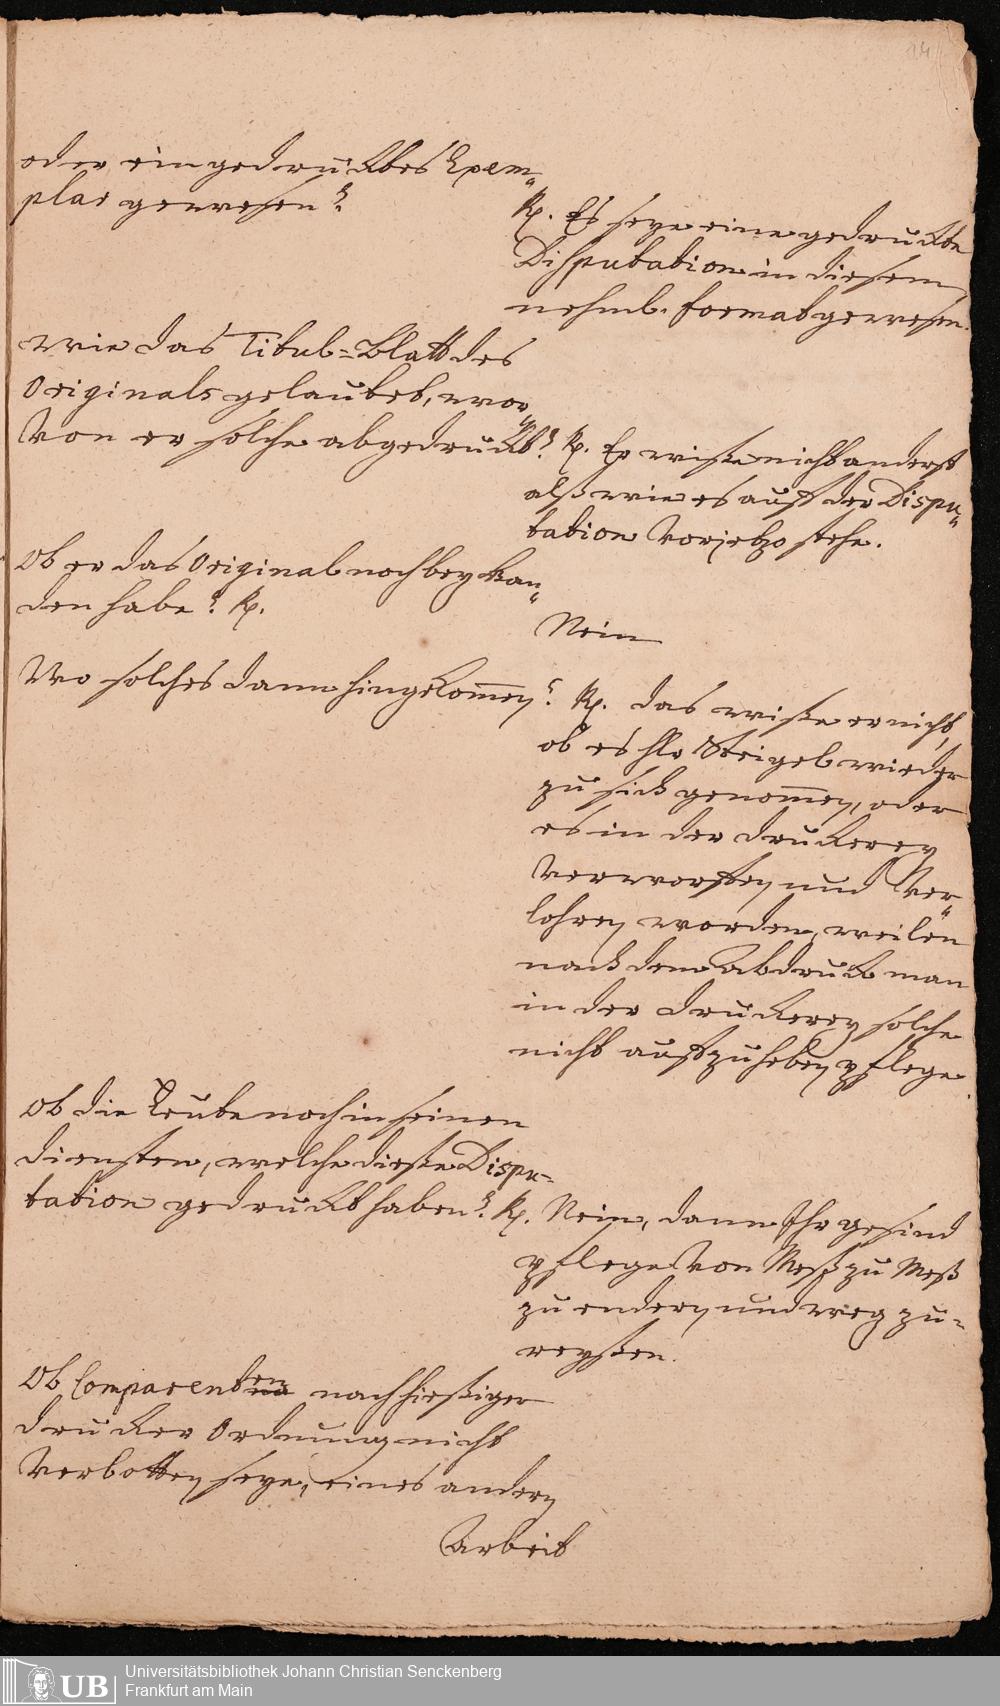 14
oder ein gedrucktes Exem-
plar gewesen?
Rp. Es seye eine gedruckte
Disputation in diesem
nehml. format gewesen.
Wie das Titul-Blatt des
Originals gelautet, wor
von er solche abgedruckt?
Rp. Er wiße nicht anderst
alß wie es auff der Dispu-
tation vorjetzo stehe.
Ob er das Original noch bey Han-
den habe? Rp.
Nein
Wo solches dann hingekommen?
Rp. das wiße er nicht,
ob es Hr Steigel wieder
zu sich genommen, oder
es in der druckerey
verworffen und ver-
lohren worden, weilen
nach dem Abdruck man
in der druckerey solche
nicht auffzuheben pflege.
Ob die Leute noch in seinen
diensten, welche dieße Dispu-
tation gedruckt haben?
Rp. Nein, dann Ihr gesind
pflege von Meß zu Meß
zu endern und weg zu-
reyßen.
Ob Comparenten nach hießiger
drucker Ordnung nicht
verbotten seye, eines andern
Arbeit
UB
Universitätsbibliothek Johann Christian Senckenberg
Frankfurt am Main